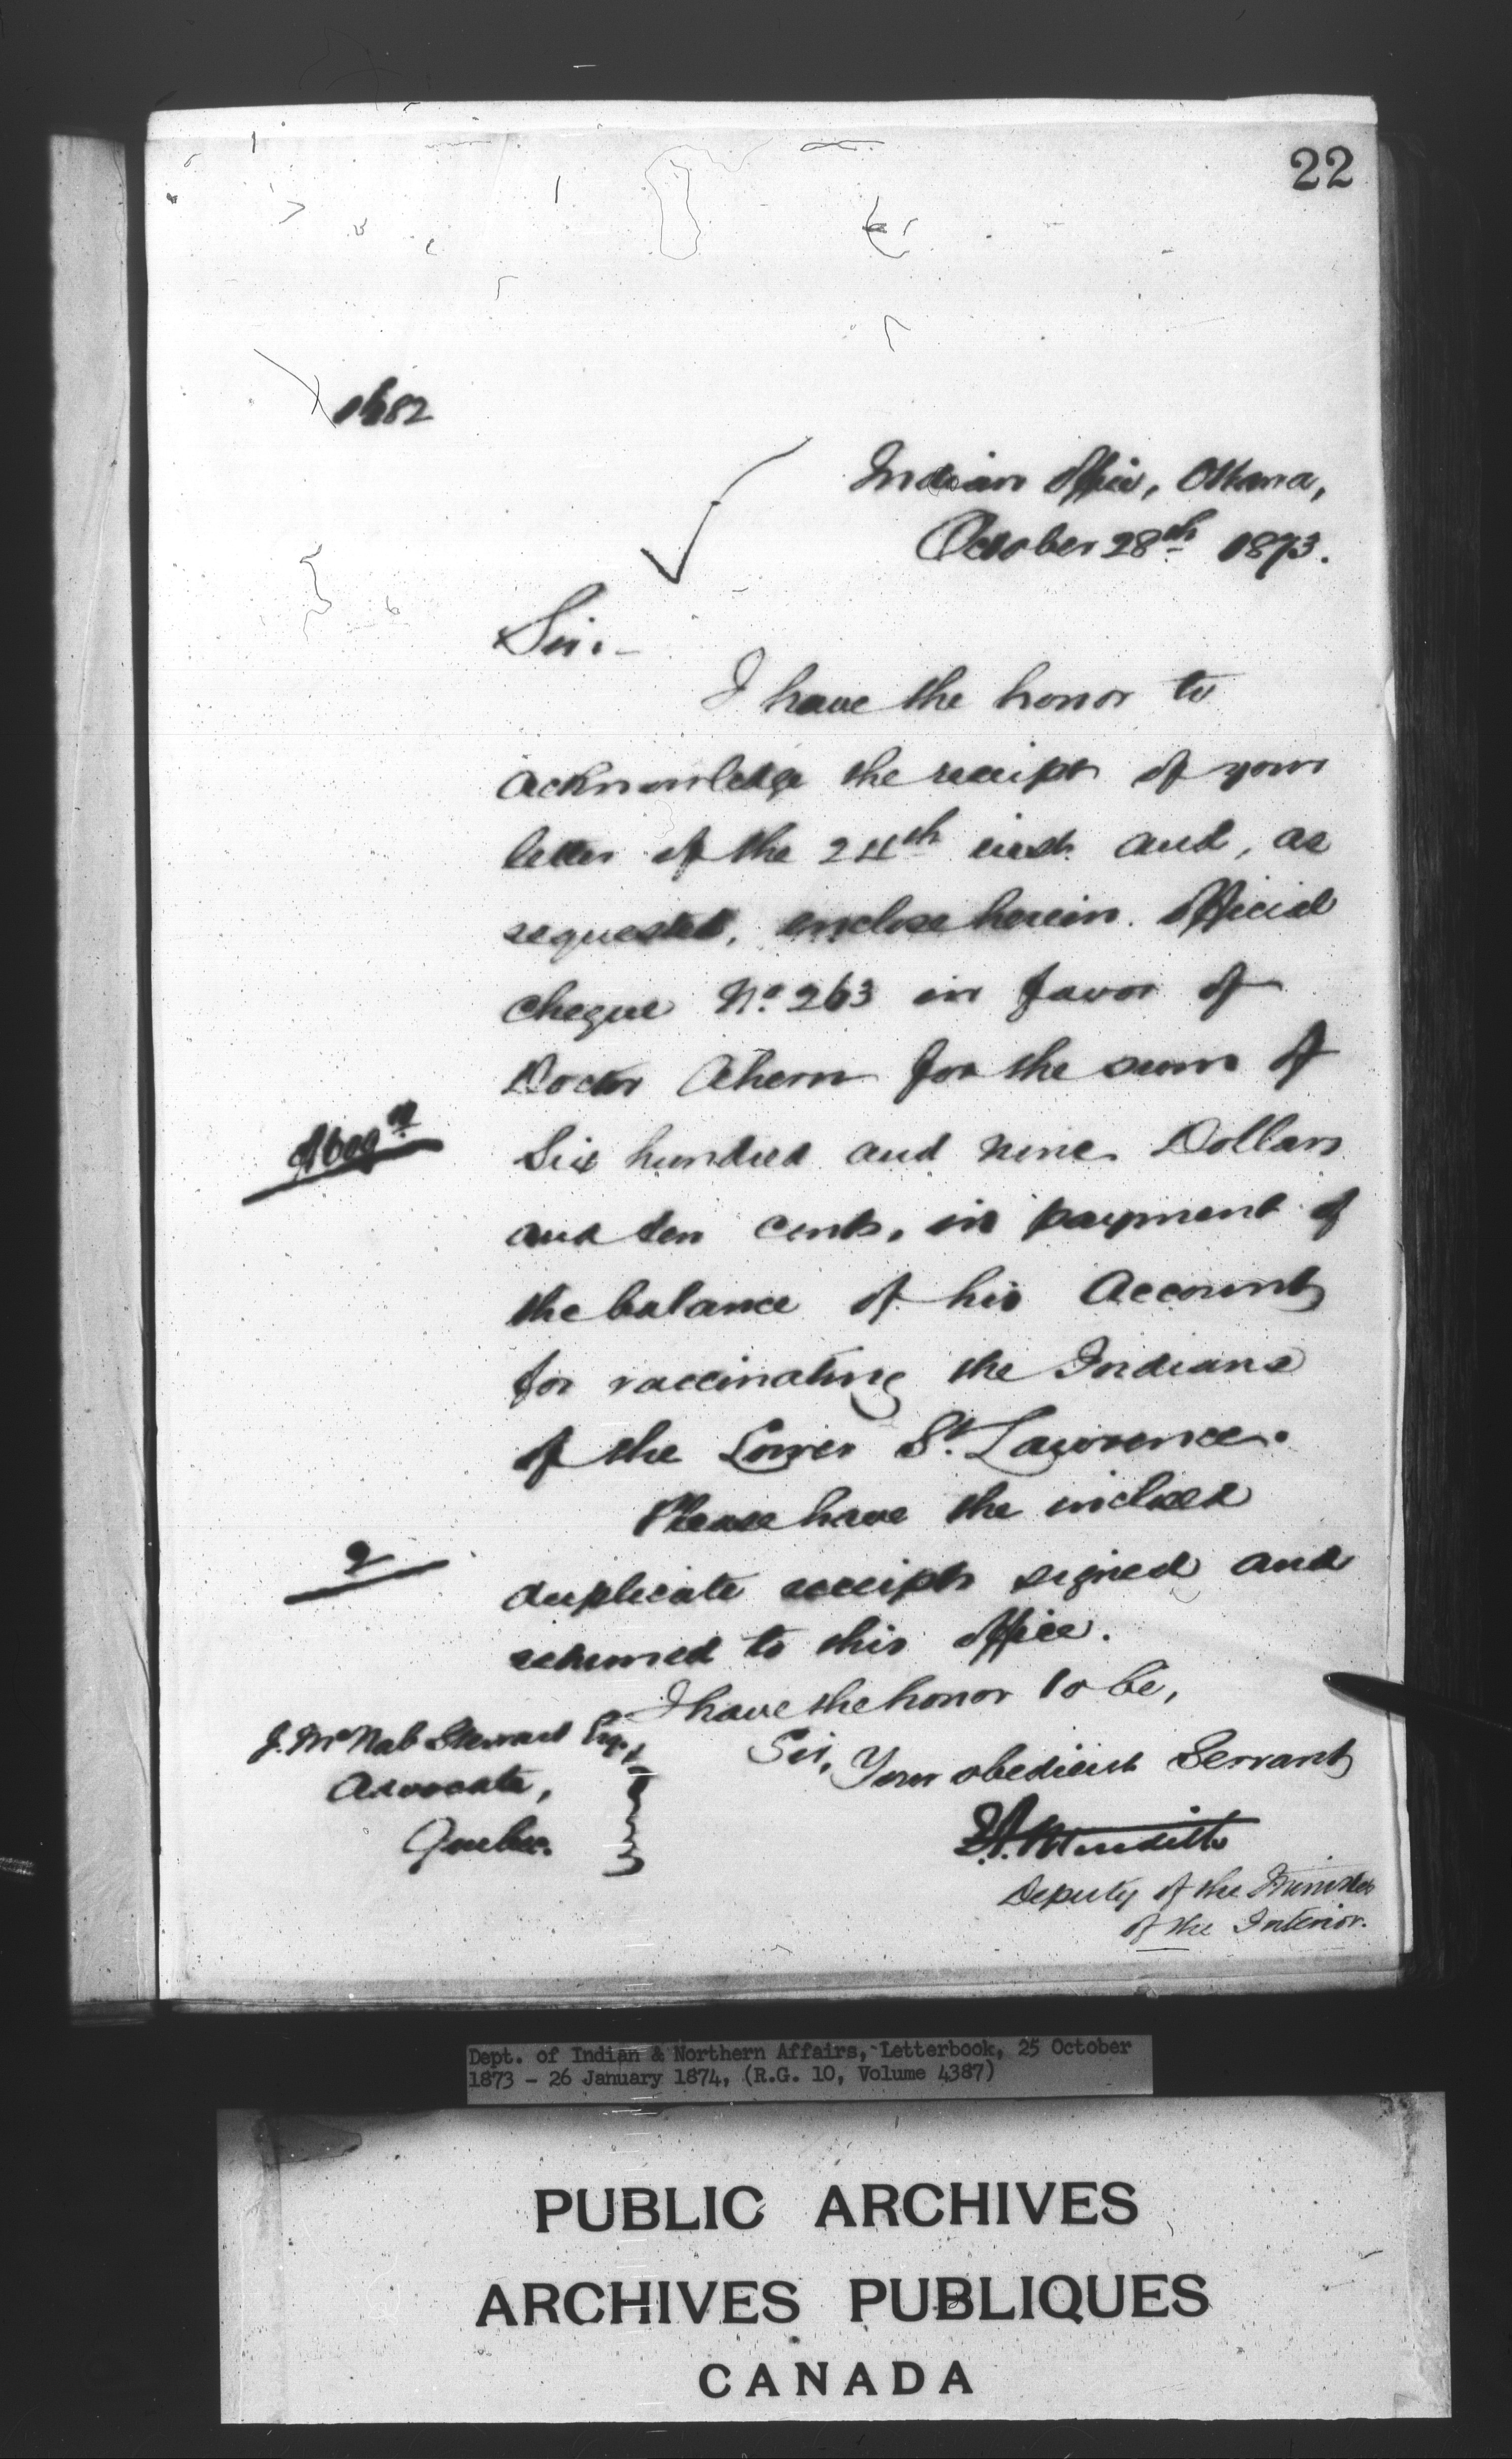 22
1682
Indian Office, Ottawa,
October 28th 1873.
Sir:-
I have the honor to
acknowledge the receipt of your
letter of the 24th inst. and, as
requested, enclose herein official
cheque No. 263 in favor of
Doctor Ahern for the sum of
Six hundred and nine Dollars
and ten cents, in payment of
the balance of his Account
for vaccinating the Indians
of the Lower St. Lawrence.
Please have the inclosed
duplicate receipts signed and
returned to this office.
I have the honor to be,
Sir,
Your obedient Servant
E.A. Meredith
Deputy of the Minister
of the Interior.
$609.10
2
J. McNab Stewart Esq.,
Advocate,
Quebec.
Dept. of Indian & Northern Affairs, Letterbook, 25 October
1873 - 26 January 1874, (R.G. 10, Volume 4387)
PUBLIC ARCHIVES
ARCHIVES PUBLIQUES
CANADA